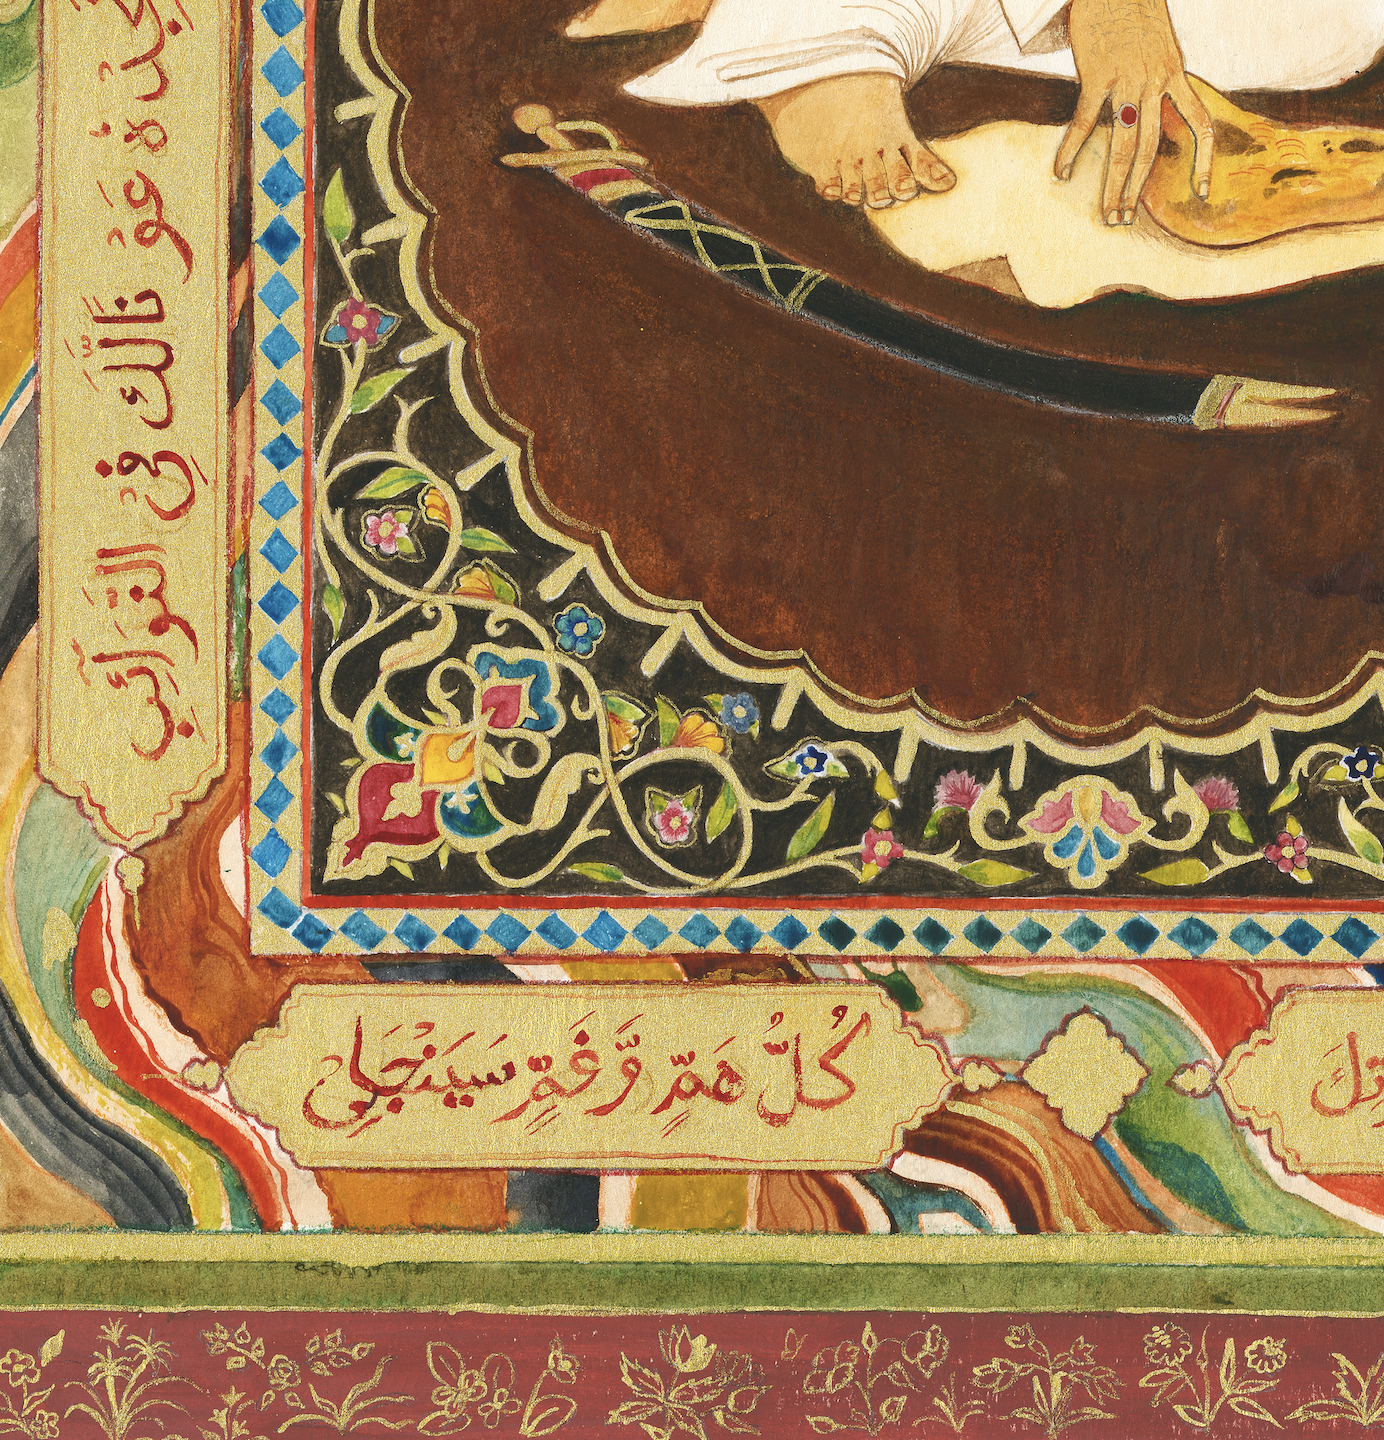 جِدْهُ عَوْنَالَّكَ فِيْ النَّوَآئِبِ
كُلُّ هَمٍّ وَّغَمٍّ سَيَنْجَلِي